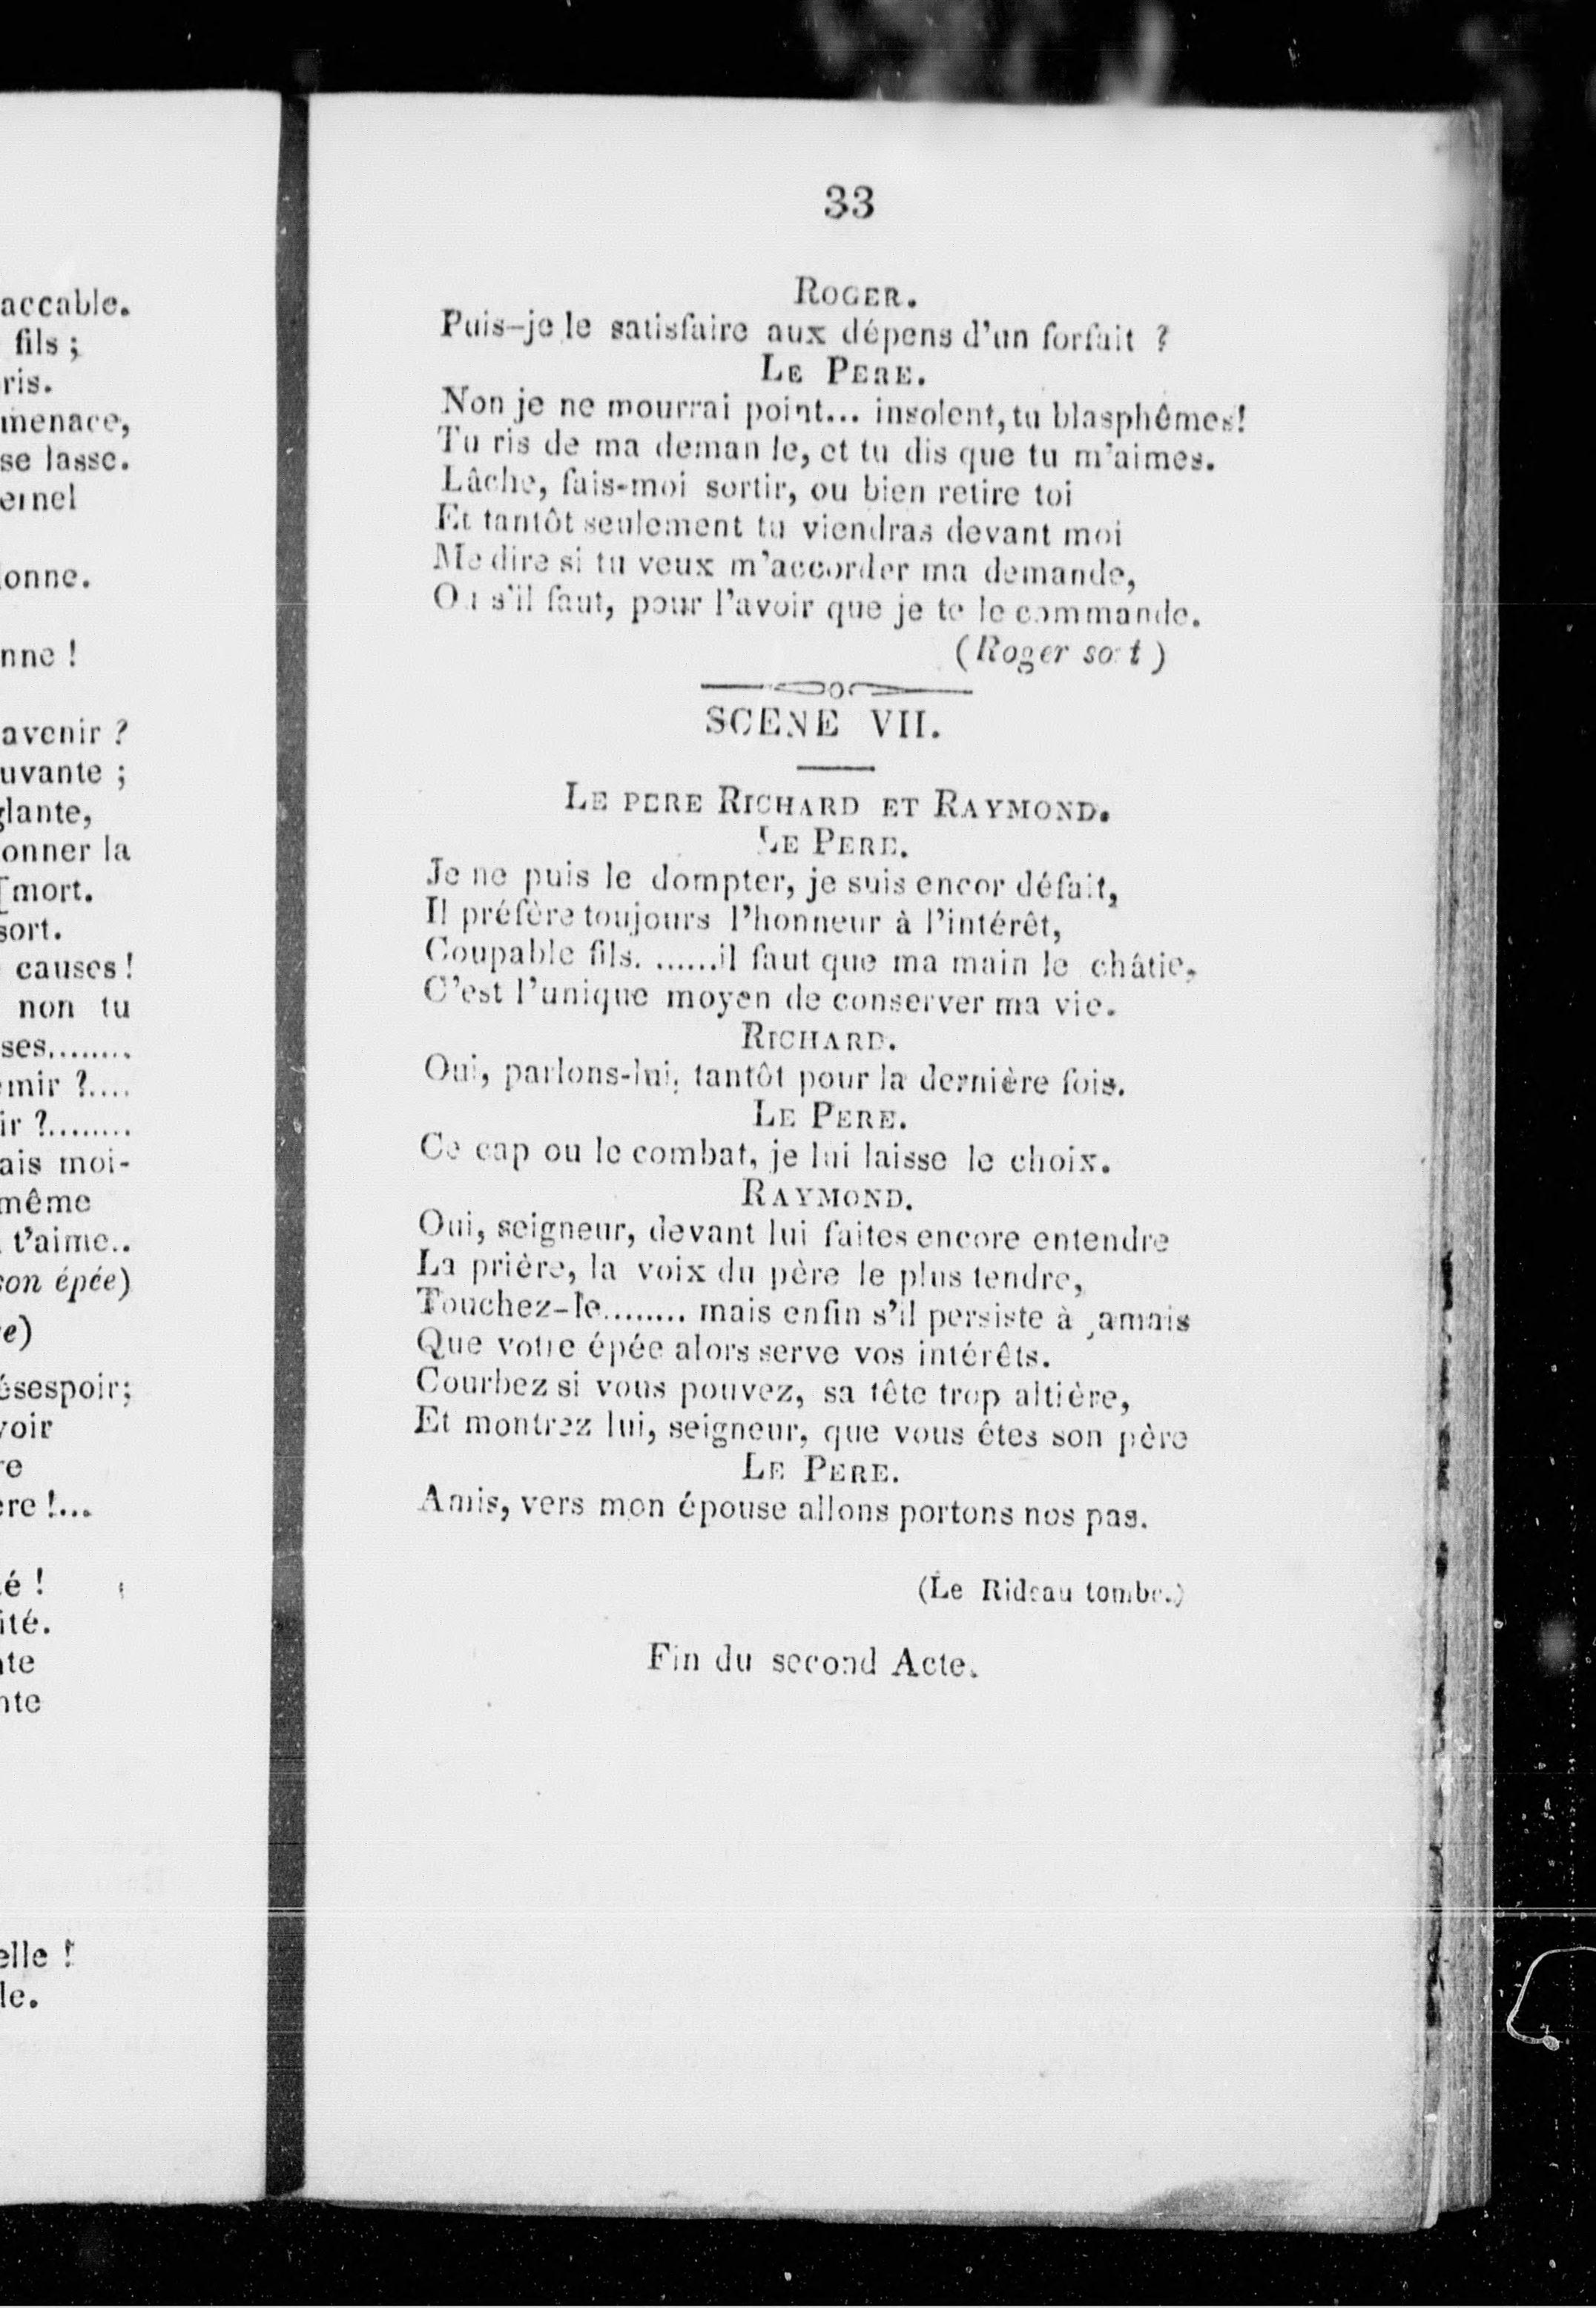 accable.
fils ;
ris.
menace,
se lasse.
ernel
onne.
nne !
avenir ?
uvante ;
glante,
onner la
[mort.
sort.
causes !
non tu
ses........
mir ?....
ir ?........
ais moi-
même
t'aime..
son épée)
e)
ésespoir;
voir
re
ère !...
é !
ité.
te
nte
elle !
le.
33
ROGER.
Puis-je le satisfaire aux dépens d'un forfait ?
LE PERE.
Non je ne mourrai point... insolent, tu blasphêmes!
Tu ris de ma deman le, et tu dis que tu m'aimes.
Lâche, fais-moi sortir, ou bien retire toi
Et tantôt seulement tu viendras devant moi
Me dire si tu veux m'accorder ma demande,
Ou s'il faut, pour l'avoir que je te le commande.
(Roger sort)
SCENE VII.
LE PERE RICHARD ET RAYMOND.
LE PERE.
Je ne puis le dompter, je suis encor défait,
Il préfère toujours l'honneur à l'intérêt,
Coupable fils. ......il faut que ma main le châtie,
C'est l'unique moyen de conserver ma vie.
RICHARD.
Oui, parlons-lui, tantôt pour la dernière fois.
LE PERE.
Ce cap ou le combat, je lui laisse le choix.
RAYMOND.
Oui, seigneur, devant lui faites encore entendre
La prière, la voix du père le plus tendre,
Touchez-le........ mais enfin s'il persiste à jamais
Que votre épée alors serve vos intérêts.
Courbez si vous pouvez, sa tête trop altière,
Et montrez lui, seigneur, que vous êtes son père
LE PERE.
Amis, vers mon épouse allons portons nos pas.
(Le Rideau tombe.)
Fin du second Acte.